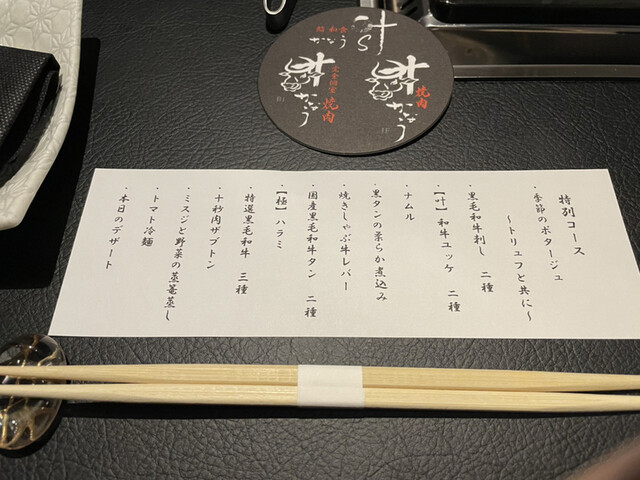 叶
かなう
焼肉
叶
かなう
完全個室
焼肉
特別コース
・季節のポタージュ
～トリュフと共に～
・黒毛和牛刺し 二種
・【叶】和牛ユッケ 二種
・ナムル
・黒タンの柔らか煮込み
・焼きしゃぶ牛レバー
・国産黒毛和牛タン 二種
・【極】ハラミ
・特選黒毛和牛 三種
・十秒肉ザブトン
・ミスジと野菜の蒸篭蒸し
・トマト冷麺
・本日のデザート